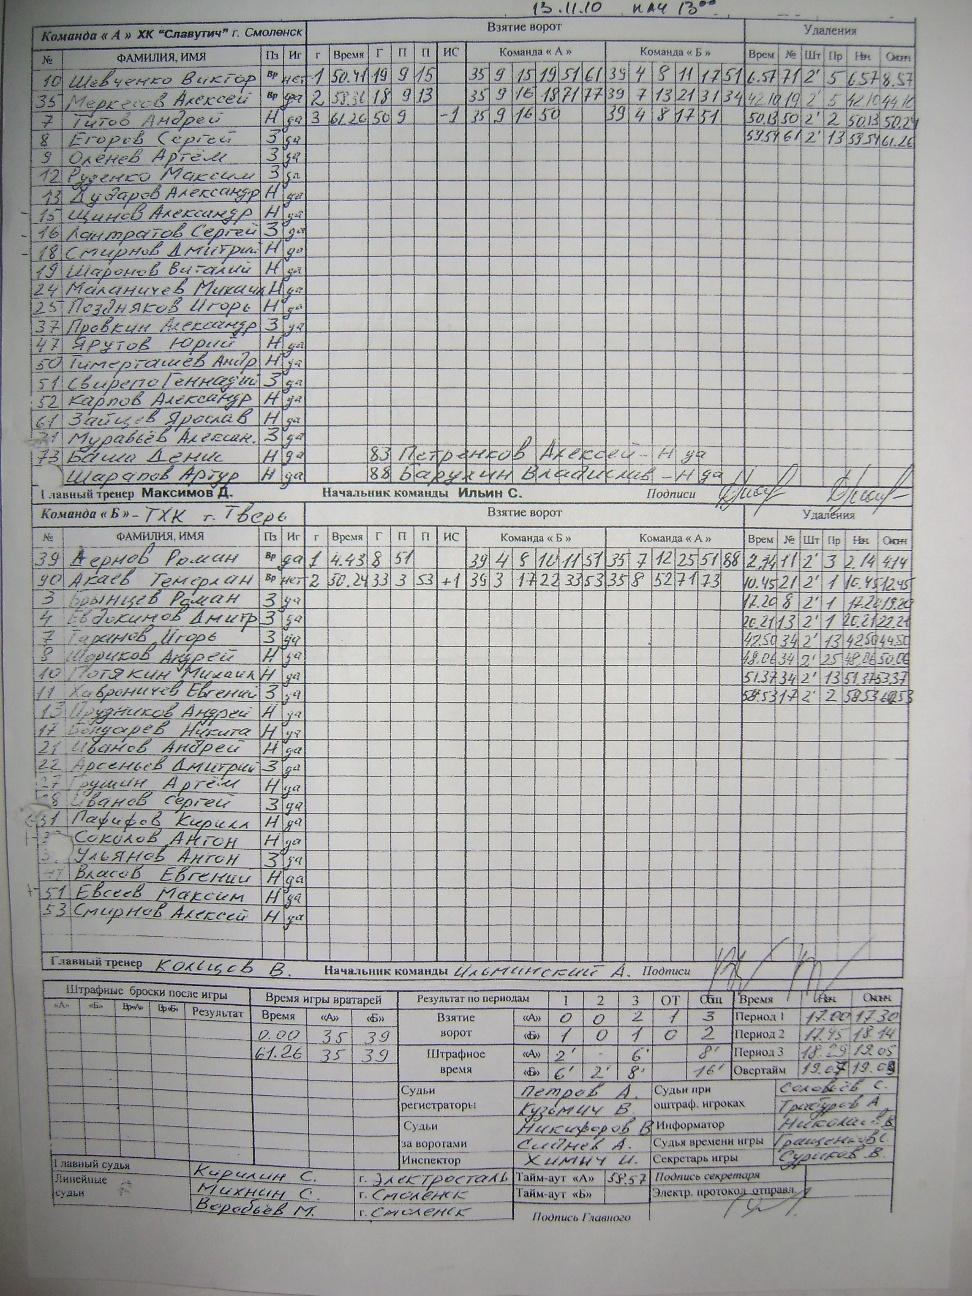 13.11.10 нач 13⁰⁰
Команда « А » ХК "Славутич" г. Смоленск Взятие ворот Удаления
№ ФАМИЛИЯ, ИМЯ Пз Иг г Время Г П П ИС Команда « А » Команда « Б » Врем № Шт Пр Нач Окон
10 Шевченко Виктор Вр нет 1 50.41 19 9 15 35 9 15 19 51 61 39 4 8 11 17 51 6.57 71 2' 5 6.57 8.57
35 Меркесов Алексей Вр да 2 58.36 18 9 13 35 9 16 18 71 77 39 7 13 21 31 34 42.10 19 2' 5 42.10 44.10
7 Титов Андрей Н да 3 61.26 50 9 -1 35 9 16 50 39 4 8 17 51 50.13 50 2' 2 50.13 50.24
8 Егоров Сергей З да 59.54 61 2' 13 59.54 61.26
9 Оленев Артём З да
12 Руденко Максим З да
13 Дударов Александр Н да
15 Щинов Александр Н да
16 Лантратов Сергей З да
18 Смирнов Дмитрий Н да
19 Шаронов Виталий Н да
24 Маланичев Михаил Н да
25 Поздняков Игорь Н да
37 Провкин Александр З да
47 Ярутов Юрий Н да
50 Тимерташев Андр Н да
51 Свирепо Геннадий З да
52 Карпов Александр Н да
61 Зайцев Ярослав Н да
71 Муравьёв Алексан. З да
73 Баша Денис Н да 83 Петренков Алексей - Н да
Шарапов Артур Н да 88 Барулин Владислав - Н да
Главный тренер Максимов Д. Начальник команды Ильин С. Подписи
Команда « Б » - ТХК г. Тверь Взятие ворот Удаления
№ ФАМИЛИЯ, ИМЯ Пз Иг г Время Г П П ИС Команда « Б » Команда « А » Врем № Шт Пр Нач Окон
39 Дернов Роман Вр да 1 4.43 8 51 39 4 8 10 11 51 35 7 12 25 51 88 2.14 11 2' 3 2.14 4.14
90 Акаев Темерлан Вр нет 2 50.24 33 3 53 +1 39 3 17 22 33 53 35 8 52 71 73 10.45 21 2' 1 10.45 12.45
3 Брынцев Роман З да 17.20 8 2' 1 17.20 19.20
4 Евдокимов Дмитр З да 20.21 13 2' 1 20.21 22.21
7 Гаринов Игорь З да 42.50 34 2' 13 42.50 44.50
8 Шориков Андрей Н да 48.06 34 2' 25 48.06 50.06
10 Потякин Михаил Н да 51.37 34 2' 13 51.37 53.37
11 Хавроничев Евгений З да 58.53 17 2' 2 58.53 60.53
13 Прудников Андрей Н да
17 Бондарев Никита Н да
21 Иванов Андрей Н да
22 Арсеньев Дмитрий З да
27 Грушин Артём Н да
28 Иванов Сергей З да
31 Пафифов Кирилл Н да
Соколов Антон Н да
Ульянов Антон З да
Власов Евгений Н да
51 Евсеев Максим Н да
53 Смирнов Алексей Н да
Главный тренер Кольцов В. Начальник команды Ильминский А. Подписи
Штрафные броски после игры Время игры вратарей Результат по периодам 1 2 3 ОТ Общ Время Нач. Оконч.
«А» «Б» Вр«А» Вр«Б» Результат Время «А» «Б» Взятие ворот «А» 0 0 2 1 3 Период 1 17.00 17.30
0.00 35 39 «Б» 1 0 1 0 2 Период 2 17.45 18.14
61.26 35 39 Штрафное время «А» 2' - 6' 8' Период 3 18.29 19.05
«Б» 6' 2' 8' 16' Овертайм 19.07 19.09
Судьи регистраторы Петров А. Судьи при оштраф. игроках Соловьёв С.
Кузьмич В. Трабуров А
Судьи за воротами Никифоров В Информатор Николаев В
Слайнев А. Судья времени игры Гращенков С.
Инспектор Химич И. Секретарь игры Суриков В.
Главный судья Кирилин С. г. Электросталь Тайм-аут «А» 58.57 Подпись секретаря
Линейные судьи Михнин С. г. Смоленск Тайм-аут «Б» Электр. протокол отправл.
Воробьёв М. г. Смоленск Подпись Главного